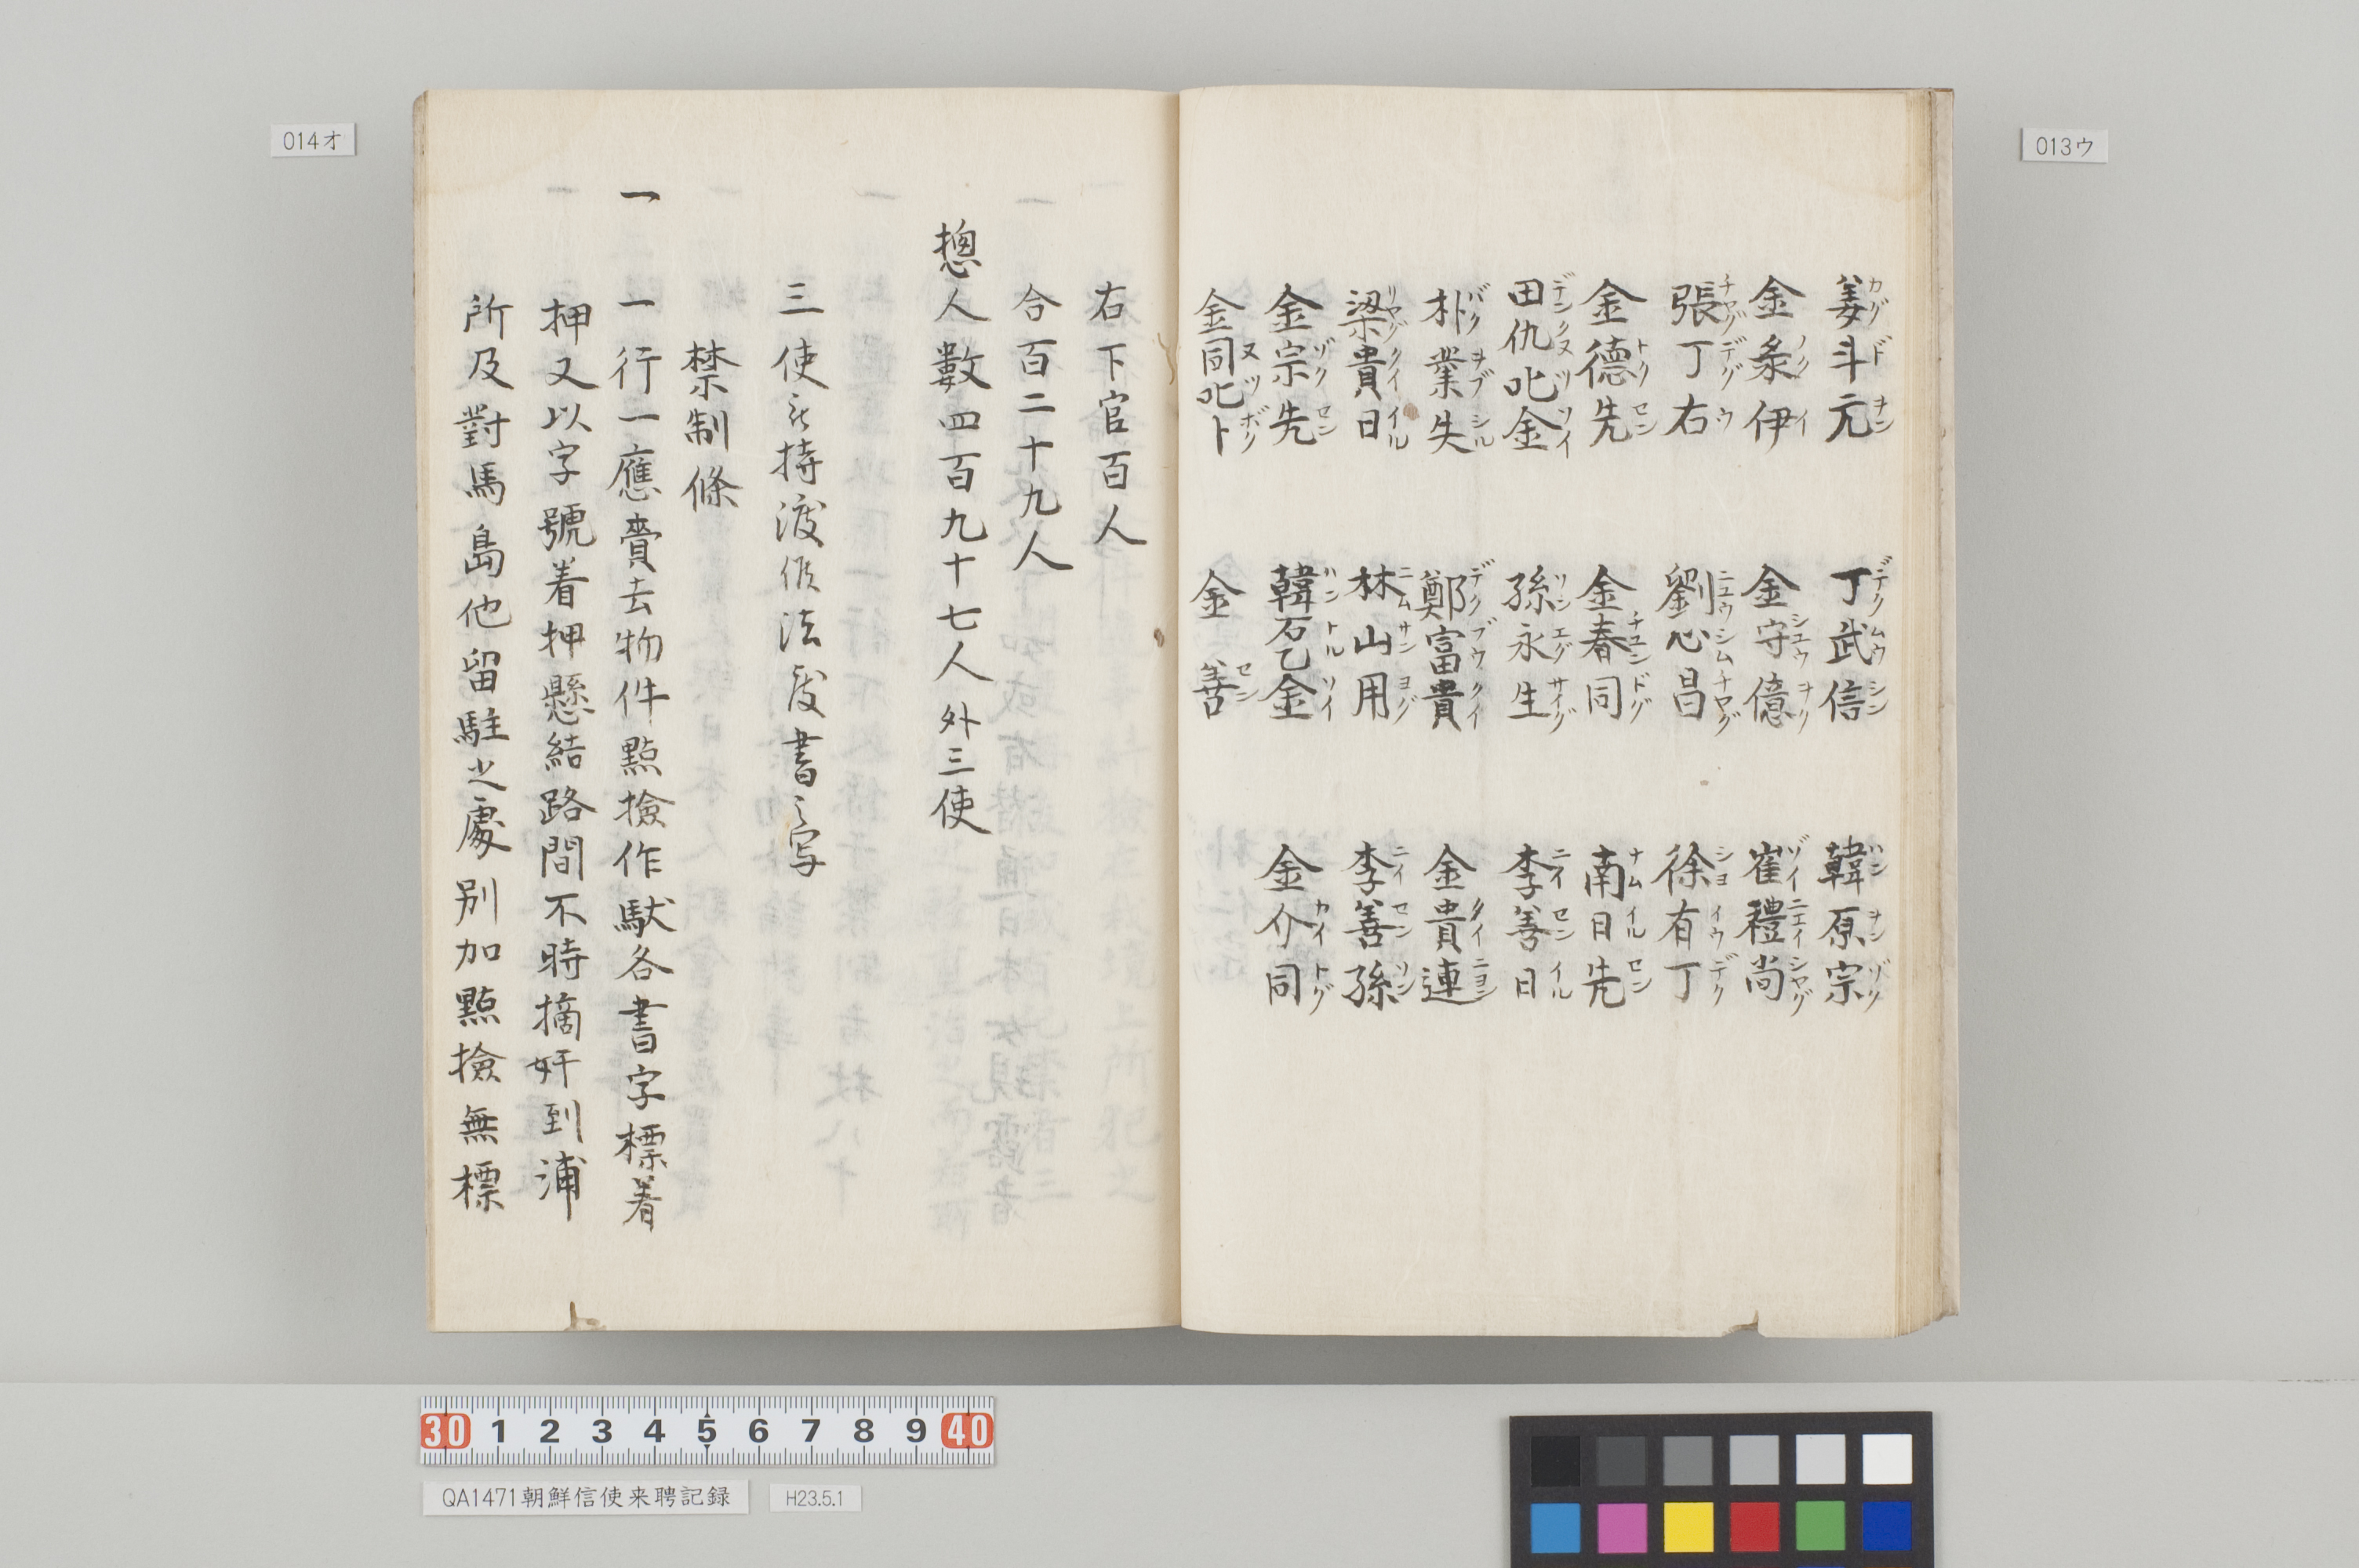 013ウ
姜斗元 丁武信 韓原宗
金彔伊 金守億 崔禮尚
張丁右 劉心昌 徐有丁
金德先 金春同 南日先
田仇叱金 孫永生 李善日
朴業失 鄭富貴 金貴連
梁貴日 林山用 李善孫
金宗先 韓石乙金 金介同
金同叱卜 金善
014オ
右下官百人
合百二十九人
摠人數四百九十七人外三使
三使持渡候法度書之写
禁制條
一 一行一應賫去物件點撿作馱各書字標着
押又以字號着押懸結路間不時摘奸到浦
所及對馬島他留駐之處別加點撿無標
30 1 2 3 4 5 6 7 8 9 40
QA1471朝鮮信使来聘記録 H23.5.1